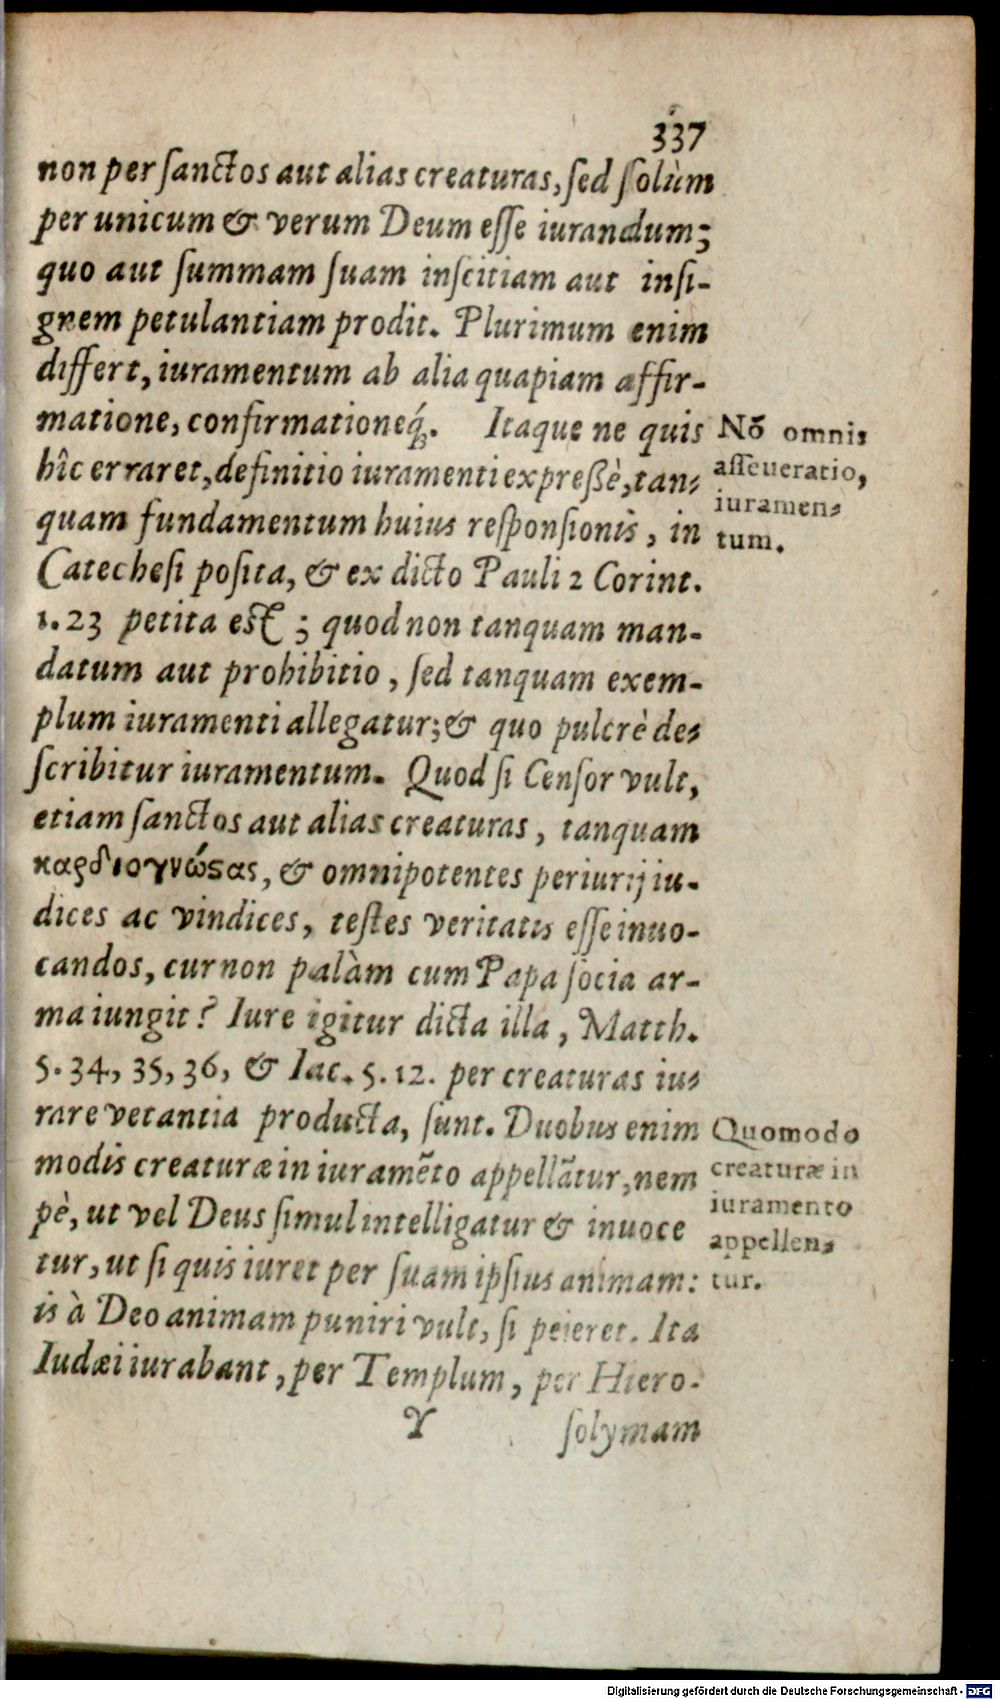 337
non per ſanctos aut alias creaturas, ſed ſolùm
per unicum & verum Deum eſſe iurandum;
quo aut ſummam ſuam inſcitiam aut inſi-
gnem petulantiam prodit. Plurimum enim
differt, iuramentum ab alia quapiam affir-
matione, confirmationeq́;. Itaque ne quis
hîc erraret, definitio iuramenti expreßè, tan-
quam fundamentum huius reſponſionis, in
Catecheſi poſita, & ex dicto Pauli 2 Corint.
1. 23 petita eſt; quod non tanquam man-
datum aut prohibitio, ſed tanquam exem-
plum iuramenti allegatur; & quo pulcrè de-
ſcribitur iuramentum. Quod ſi Cenſor vult,
etiam ſanctos aut alias creaturas, tanquam
καρδιογνώϛας, & omnipotentes periurij iu-
dices ac vindices, teſtes veritatis eſſe inuo-
candos, cur non palàm cum Papa ſocia ar-
ma iungit? Iure igitur dicta illa, Matth.
5. 34, 35, 36, & Iac. 5. 12. per creaturas iu-
rare vetantia producta, ſunt. Duobus enim
modis creaturæ in iuramẽto appellãtur, nem
pè, ut vel Deus ſimul intelligatur & inuoce
tur, ut ſi quis iuret per ſuam ipſius animam:
is à Deo animam puniri vult, ſi peieret. Ita
Iudæi iurabant, per Templum, per Hiero-
Y
ſolymam
Nō omnis
aſſeueratio,
iuramen-
tum.
Quomodo
creaturæ in
iuramento
appellen-
tur.
Digitalisierung gefördert durch die Deutsche Forschungsgemeinschaft - DFG